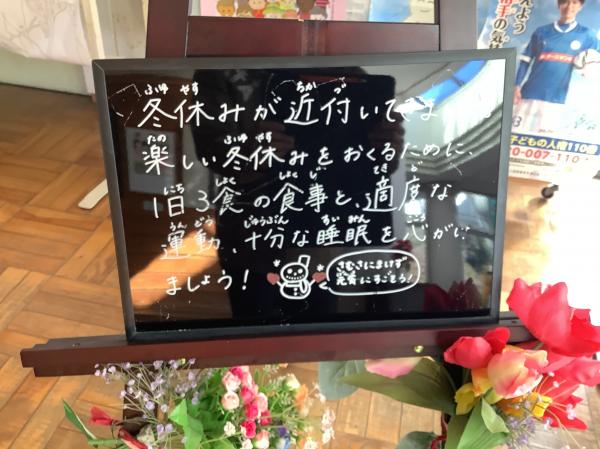 冬休みが近付いてきま
楽しい冬休みをおくるために、
1日3食の食事と、適度な
運動、十分な睡眠を心がけ
ましょう！
さむさにまけず
元気にすごそう！
子どもの人権110番
0-007-110